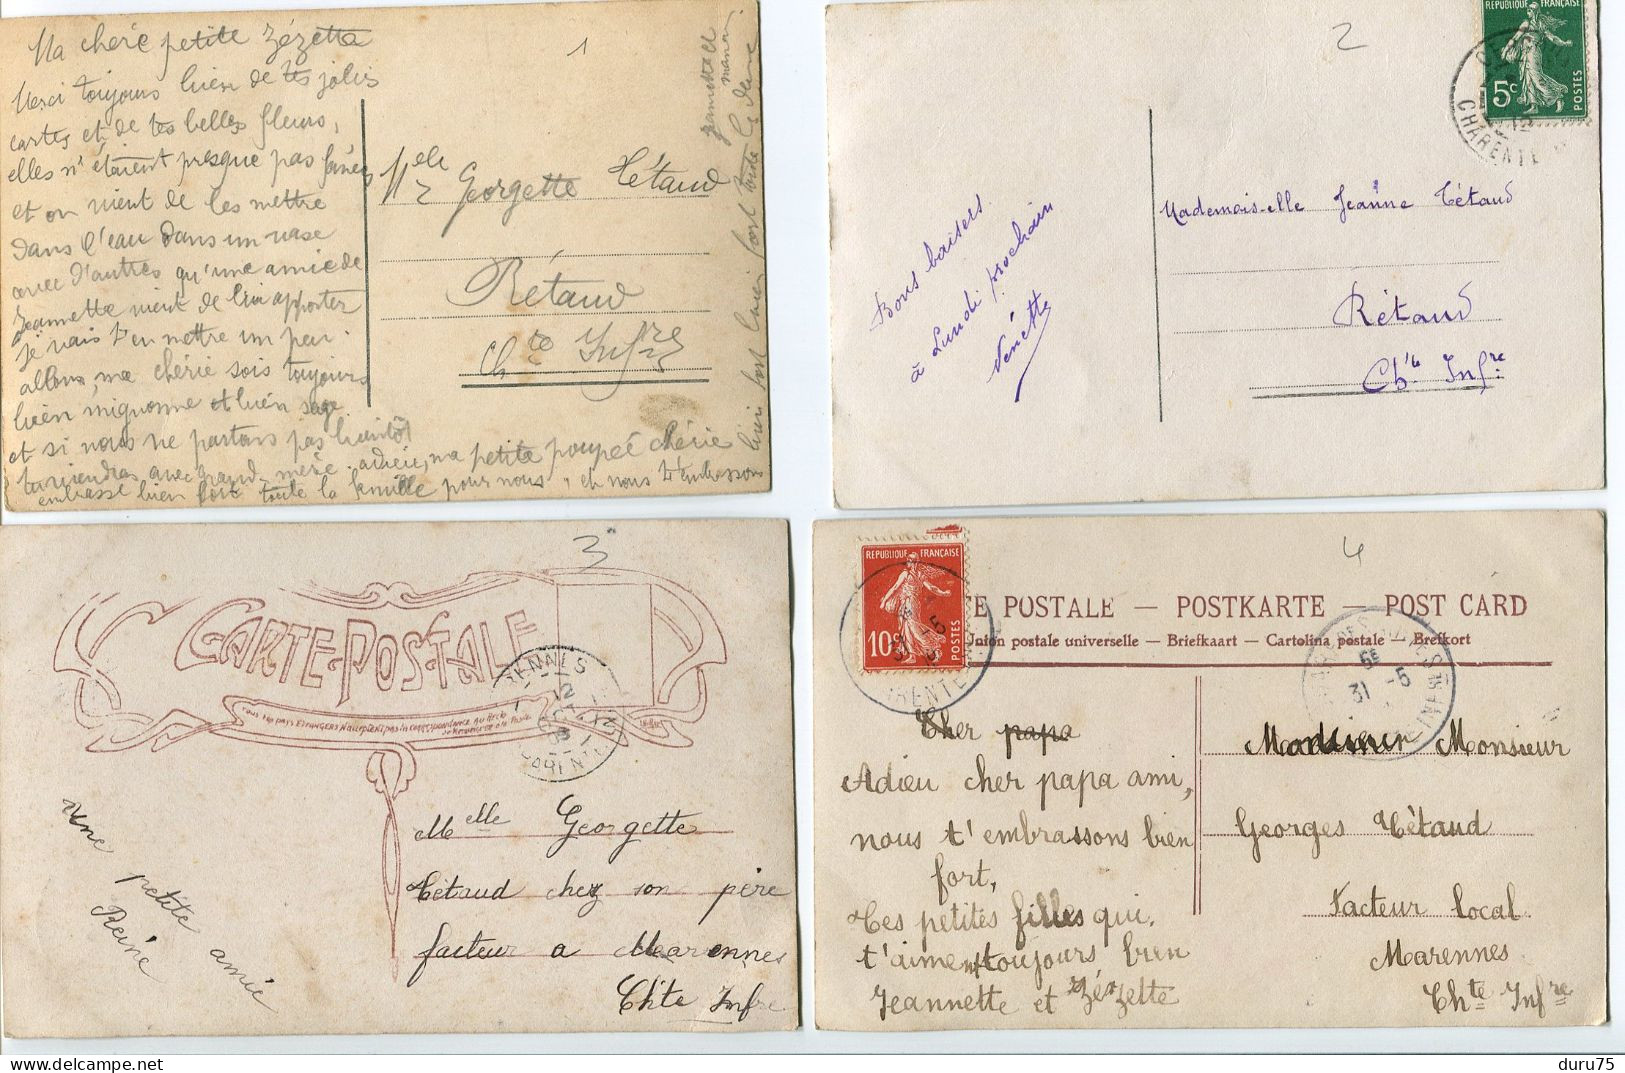 1
Ma chère petite Zézette
Merci toujours bien de tes jolies
cartes et de tes belles fleurs,
elles n'étaient presque pas fanées
et on vient de les mettre
dans l'eau dans un vase
avec d'autres qu'une amie de
Jeannette vient de lui apporter
je vais t'en mettre un peu.
allons, ma chérie sois toujours
bien mignonne et bien sage
et si nous ne partons pas bientôt
tu viendras avec grand-mère. adieu, ma petite poupée chérie
embrasse bien fort toute la famille pour nous, et nous t'embrassons
bien fort
Jeannette et
maman
Melle Georgette Tétaud
Rétaud
Chte Infre
2
RÉPUBLIQUE FRANÇAISE
5c
POSTES
CHARENTE
Bons baisers
à Lundi prochain
Nénette
Mademois-elle Jeanne Tétaud
Rétaud
Chte Infre
3
CARTE-POSTALE
TOUS LES PAYS ETRANGERS N'ACCEPTENT PAS LA CORRESPONDANCE AU RECTO
Melle Georgette
Tétaud chez son père
facteur a Marennes
Chte Infre
Une petite amie
Reine
4
RÉPUBLIQUE FRANÇAISE
10c
POSTES
E POSTALE — POSTKARTE — POST CARD
Union postale universelle — Briefkaart — Cartolina postale — Brefkort
31 -5
Cher papa
Adieu cher papa ami,
nous t'embrassons bien
fort,
Tes petites filles qui
t'aiment toujours bien
Jeannette et Zézette
Monsieur
Georges Tétaud
Facteur Local
Marennes
Chte Infre
duru75